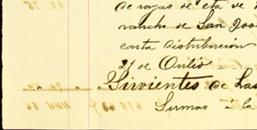 de rayas de eta de
rancho de San Jos
conta distribucion
21 de Julio
Sirvientes de Las
Sumas á la